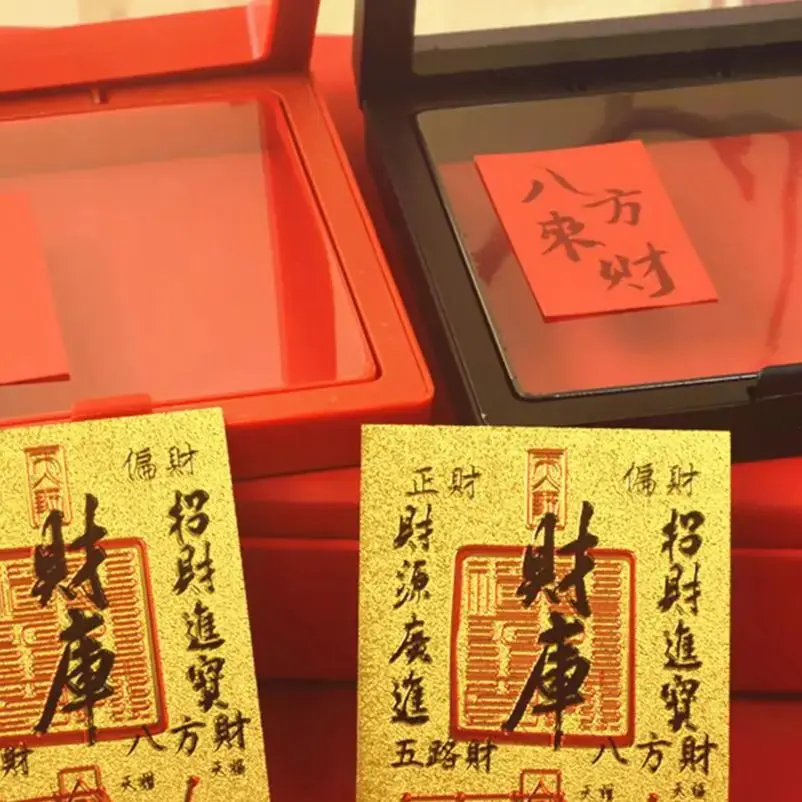 八方
來財
偏財
財庫
招財進寶
八方財
財
天福
正財
偏財
財源廣進
財庫
招財進寶
五路財
八方財